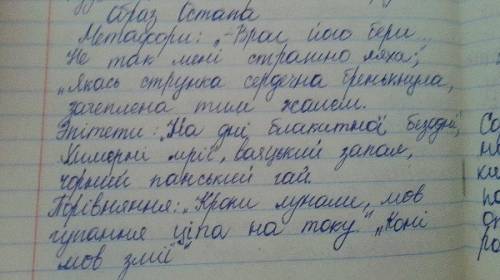 Образ Остапа
Метафори: „-Враг його бери...
Не так мені страшно ляха;"
„Якась струнка сердечна бренькнула,
зачеплена тим жалем.
Епітети: „На дні блакитної безодні,
Химерні мрії, вояцький запал,
чорний панський гай.
Порівняння: „Кроки лунали, мов
гупання ціпа на току" „Коні
мов змії"
Со
на
ки
по
оп
ра